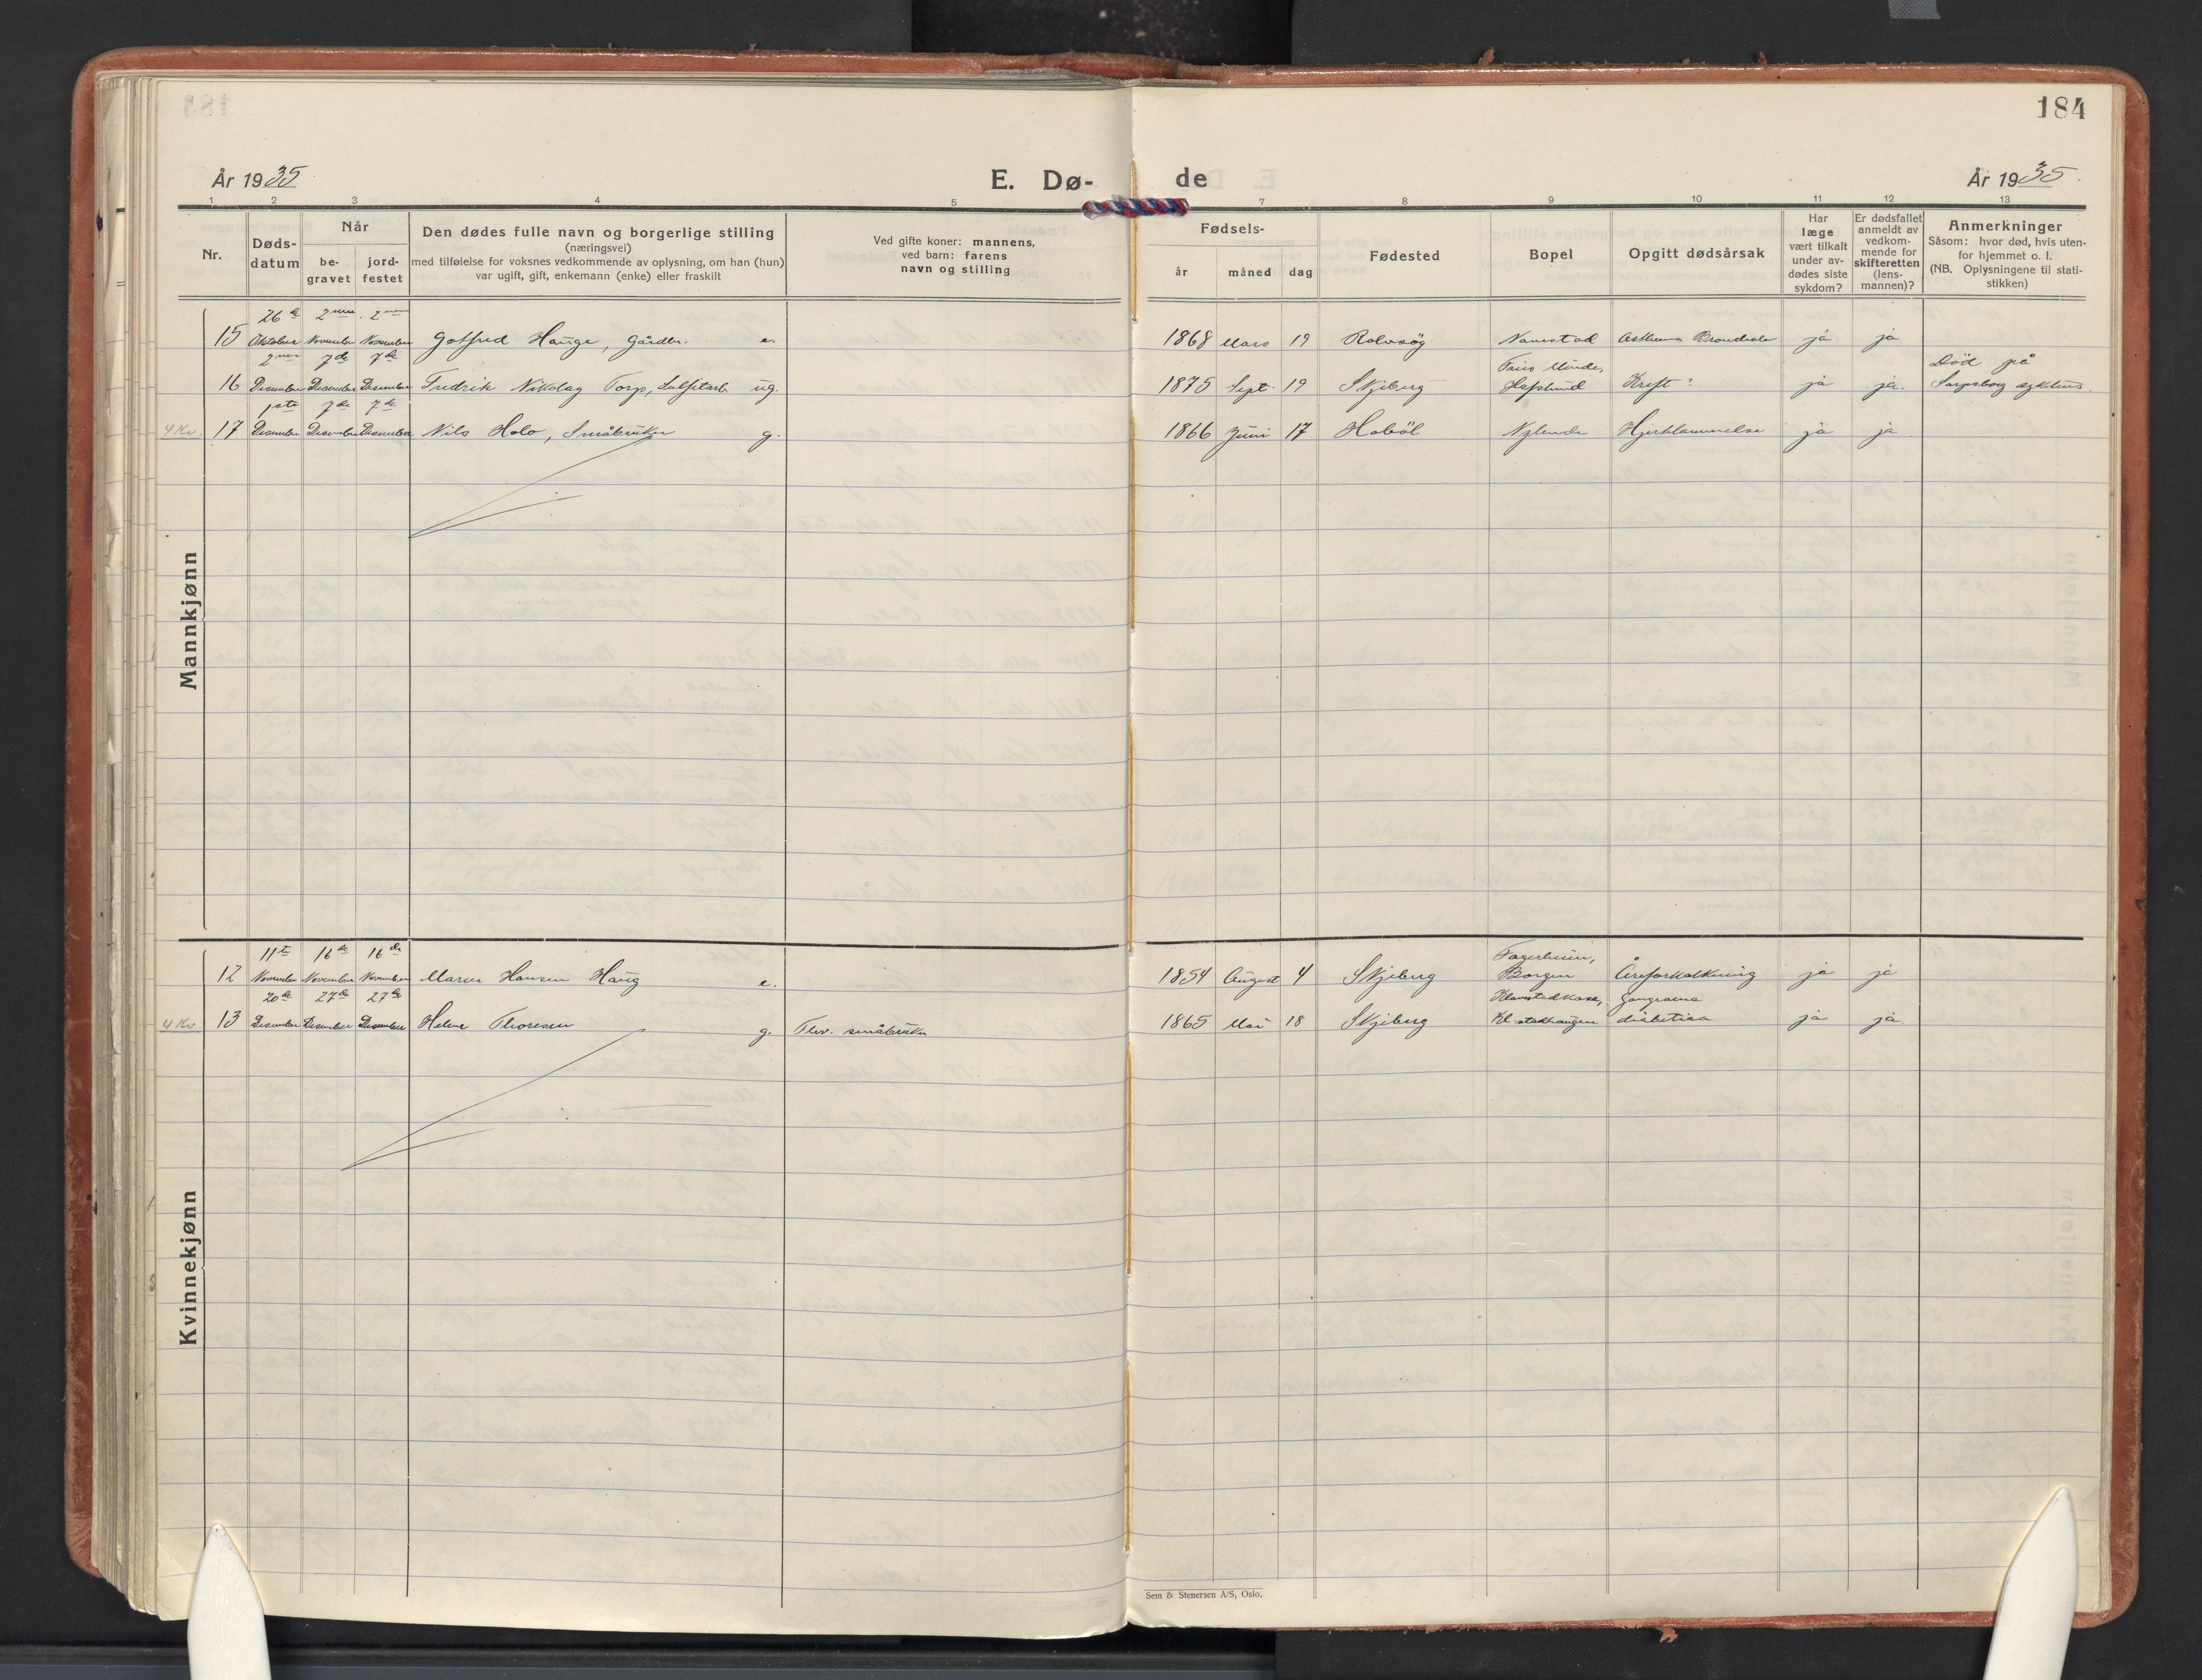 184
År 1935
E. Dø-
de
År 1935.
1 2 3 4 5 7 8 9 10 11 12 13
Nr.
Døds-
datum
Når
be-
gravet
jord-
festet
Den dødes fulle navn og borgerlige stilling
(næringsvei)
med tilføielse for voksnes vedkommende av oplysning, om han (hun)
var ugift, gift, enkemann (enke) eller fraskilt
Ved gifte koner: mannens,
ved barn: farens
navn og stilling
Fødsels-
år måned dag
Fødested
Bopel
Opgitt dødsårsak
Har
læge
vært tilkalt
under av-
dødes siste
sykdom?
Er dødsfallet
anmeldt av
vedkom-
mende for
skifteretten
(lens-
mannen)?
Anmerkninger
Såsom: hvor død, hvis uten-
for hjemmet o. l.
(NB. Oplysningene til stati-
stikken)
Mannkjønn
26de 2nen 2nen
15 Oktober November November Gotfred Hauge, Gårdbr. e. 1868 Mars 19 Rolvsøy Navestad Asthma Bronchiale ja ja
2nen 7de 7de Minde, Død på
16 Desember Desember Desember Fredrik Nikolay Torp, Sulfitarb. ug. 1875 Sept. 19 Skjeberg Hafslund Kreft ja ja. Sarpsborg sykehus.
1ste 7de 7de
4 Kv. 17 Desember Desember Desember Nils Holo, Småbruker g. 1866 Juni 17 Hobøl Nylende Hjertelammelse ja ja
Kvinnekjønn
11te 16de 16de Fagerheim,
12 November November November Maren Hansen Haug e. 1854 August 4 Skjeberg Borgen Åreforkalkning ja ja
20de 27de 27de Klavestadkasa, Gangraena
4 Kv 13 Desember Desember Desember Helene Thoresen g. Thv. småbruker 1865 Mai 18 Skjeberg Kl.stadhaugen diabetica ja ja
Sem & Stenersen A/S, Oslo.